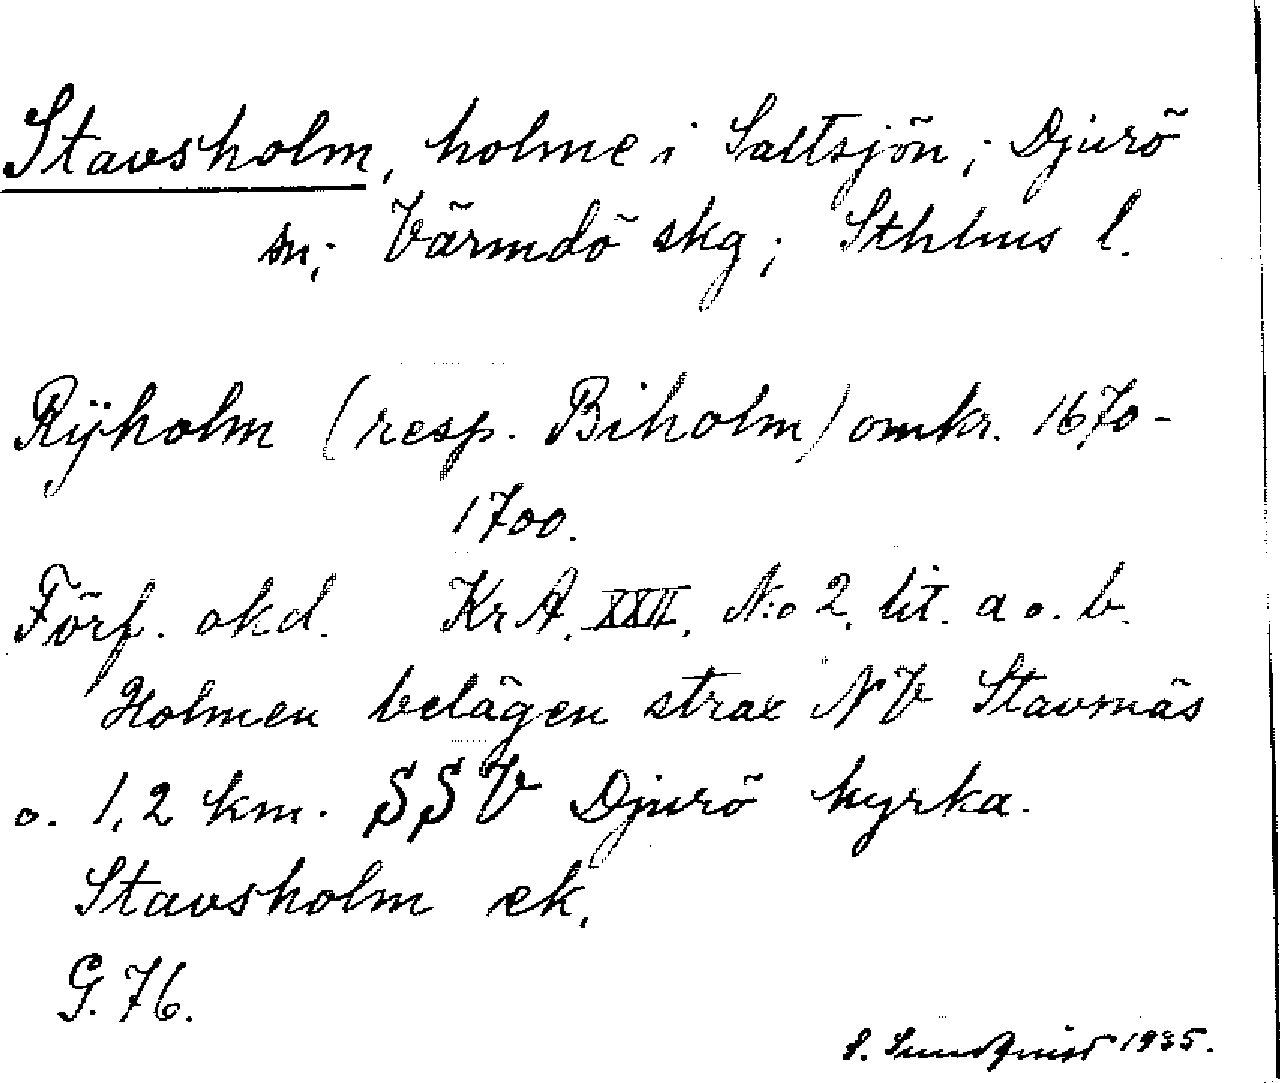 Stavsholm, holme i Saltsjön; Djurö
sn; Värmdö skg; Sthlms l.
Rÿholm (resp. Biholm) omkr. 1670-
1700.
Förf. okd. KrA. XXII. N:o 2. lit. a o. b.
Holmen belägen strax NV Stavsnäs
o. 1,2 km. SSV Djurö kyrka.
Stavsholm ek.
G. 76.
S. Sundqvist 1935.